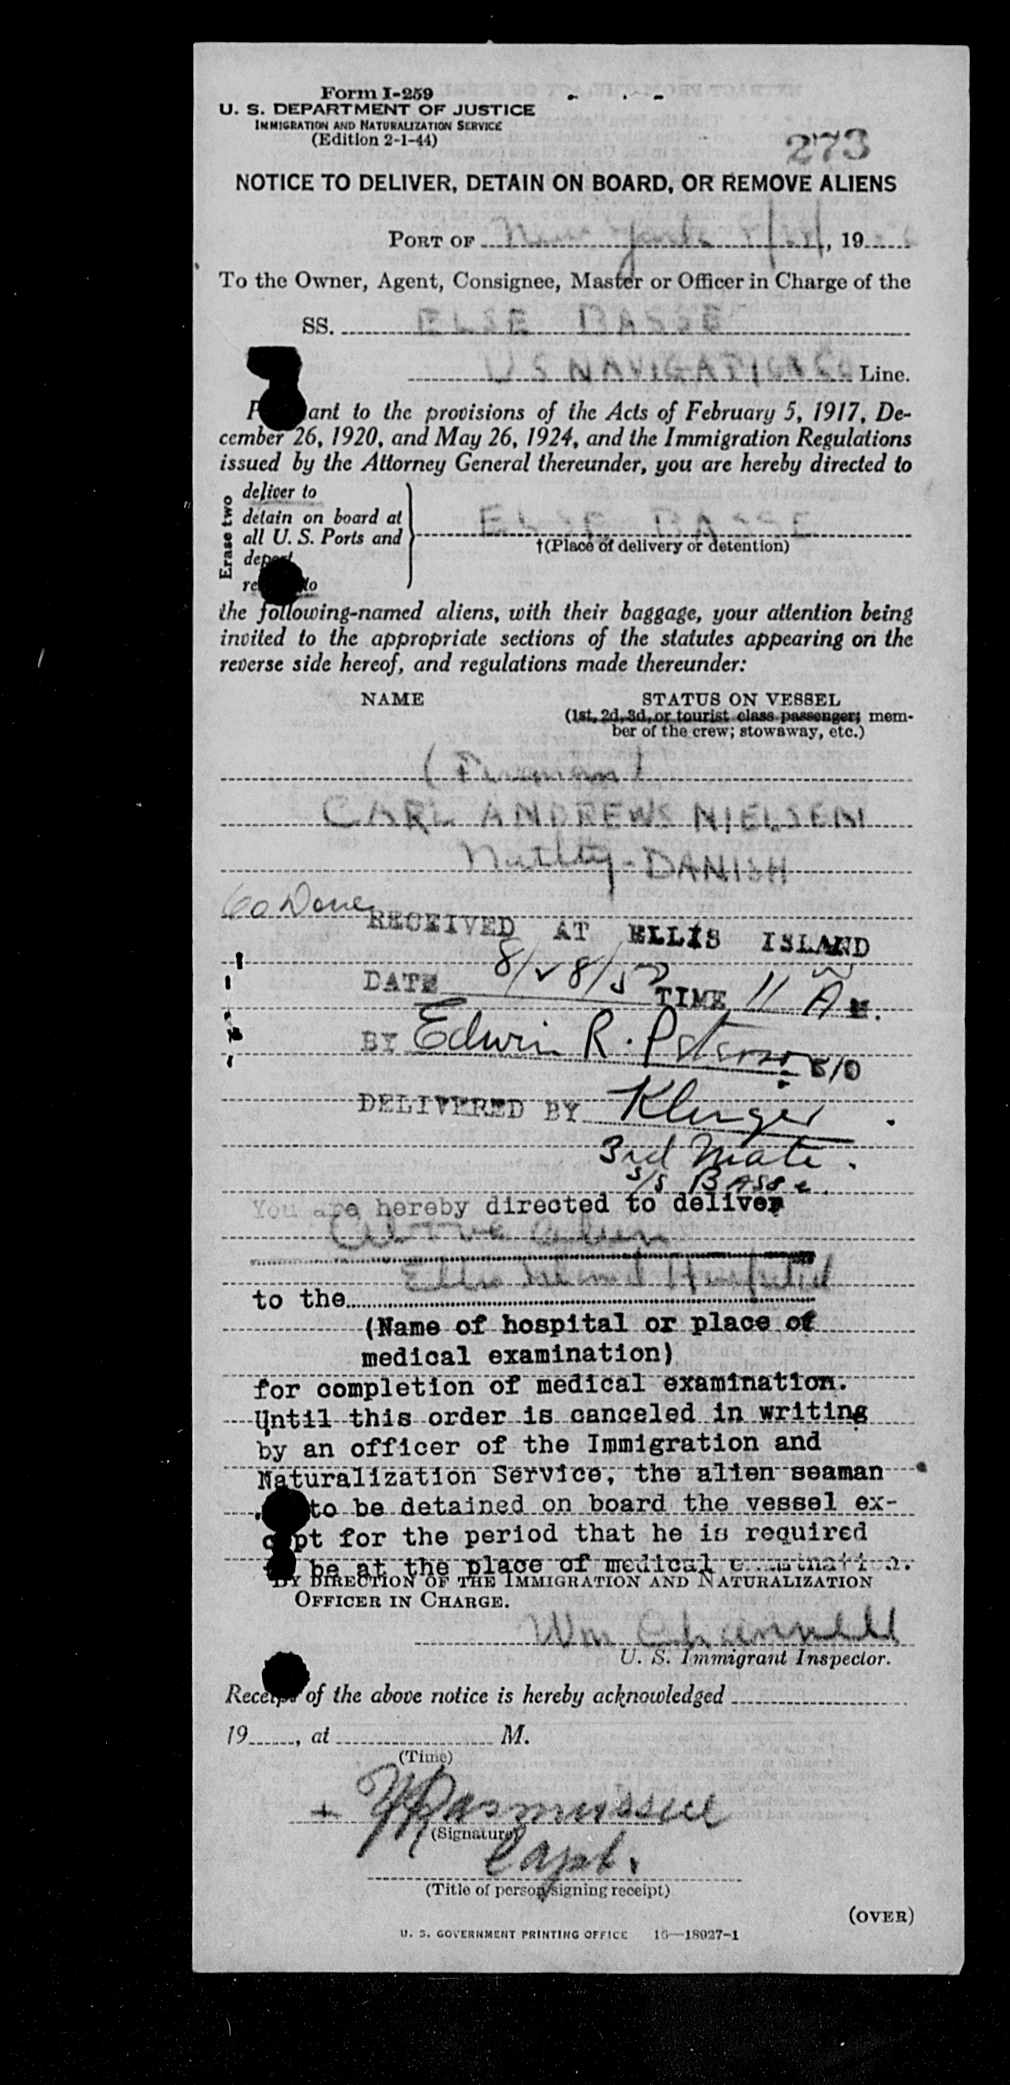 Form I-259
U. S. DEPARTMENT OF JUSTICE
IMMIGRATION AND NATURALIZATION SERVICE
(Edition 2-1-44)
273
NOTICE TO DELIVER, DETAIN ON BOARD, OR REMOVE ALIENS
PORT OF New York 8/28/, 19
To the Owner, Agent, Consignee, Master or Officer in Charge of the
SS. ELSE BASSE
U S NAVIGATION CO Line.
P ant to the provisions of the Acts of February 5, 1917, De-
cember 26, 1920, and May 26, 1924, and the Immigration Regulations
issued by the Attorney General thereunder, you are hereby directed to
Erase two
deliver to
detain on board at
all U. S. Ports and
deport
re to
ELSE BASSE
†(Place of delivery or detention)
the following-named aliens, with their baggage, your attention being
invited to the appropriate sections of the statutes appearing on the
reverse side hereof, and regulations made thereunder:
NAME STATUS ON VESSEL
(1st, 2d, 3d, or tourist class passenger; mem-
ber of the crew; stowaway, etc.)
(Fireman)
CARL ANDREWS NIELSEN
Natlty - DANISH
RECEIVED AT ELLIS ISLAND
DATE 8/28/50 TIME 11 A M.
BY Edwin R. Peterson S/O
DELIVERED BY Klinger
3rd Mate.
S/S Basse.
You are hereby directed to deliver
above alien
to the Ellis Island Hospital
(Name of hospital or place of
medical examination)
for completion of medical examination.
Until this order is canceled in writing
by an officer of the Immigration and
Naturalization Service, the alien seaman
to be detained on board the vessel ex-
cept for the period that he is required
be at the place of medical examination.
BY DIRECTION OF THE IMMIGRATION AND NATURALIZATION
OFFICER IN CHARGE.
Wm
U. S. Immigrant Inspector.
Receipt of the above notice is hereby acknowledged
19 , at M.
(Time)
+ Rasmussen
(Signature)
Capt.
(Title of person signing receipt)
(OVER)
U. S. GOVERNMENT PRINTING OFFICE 16—18027-1